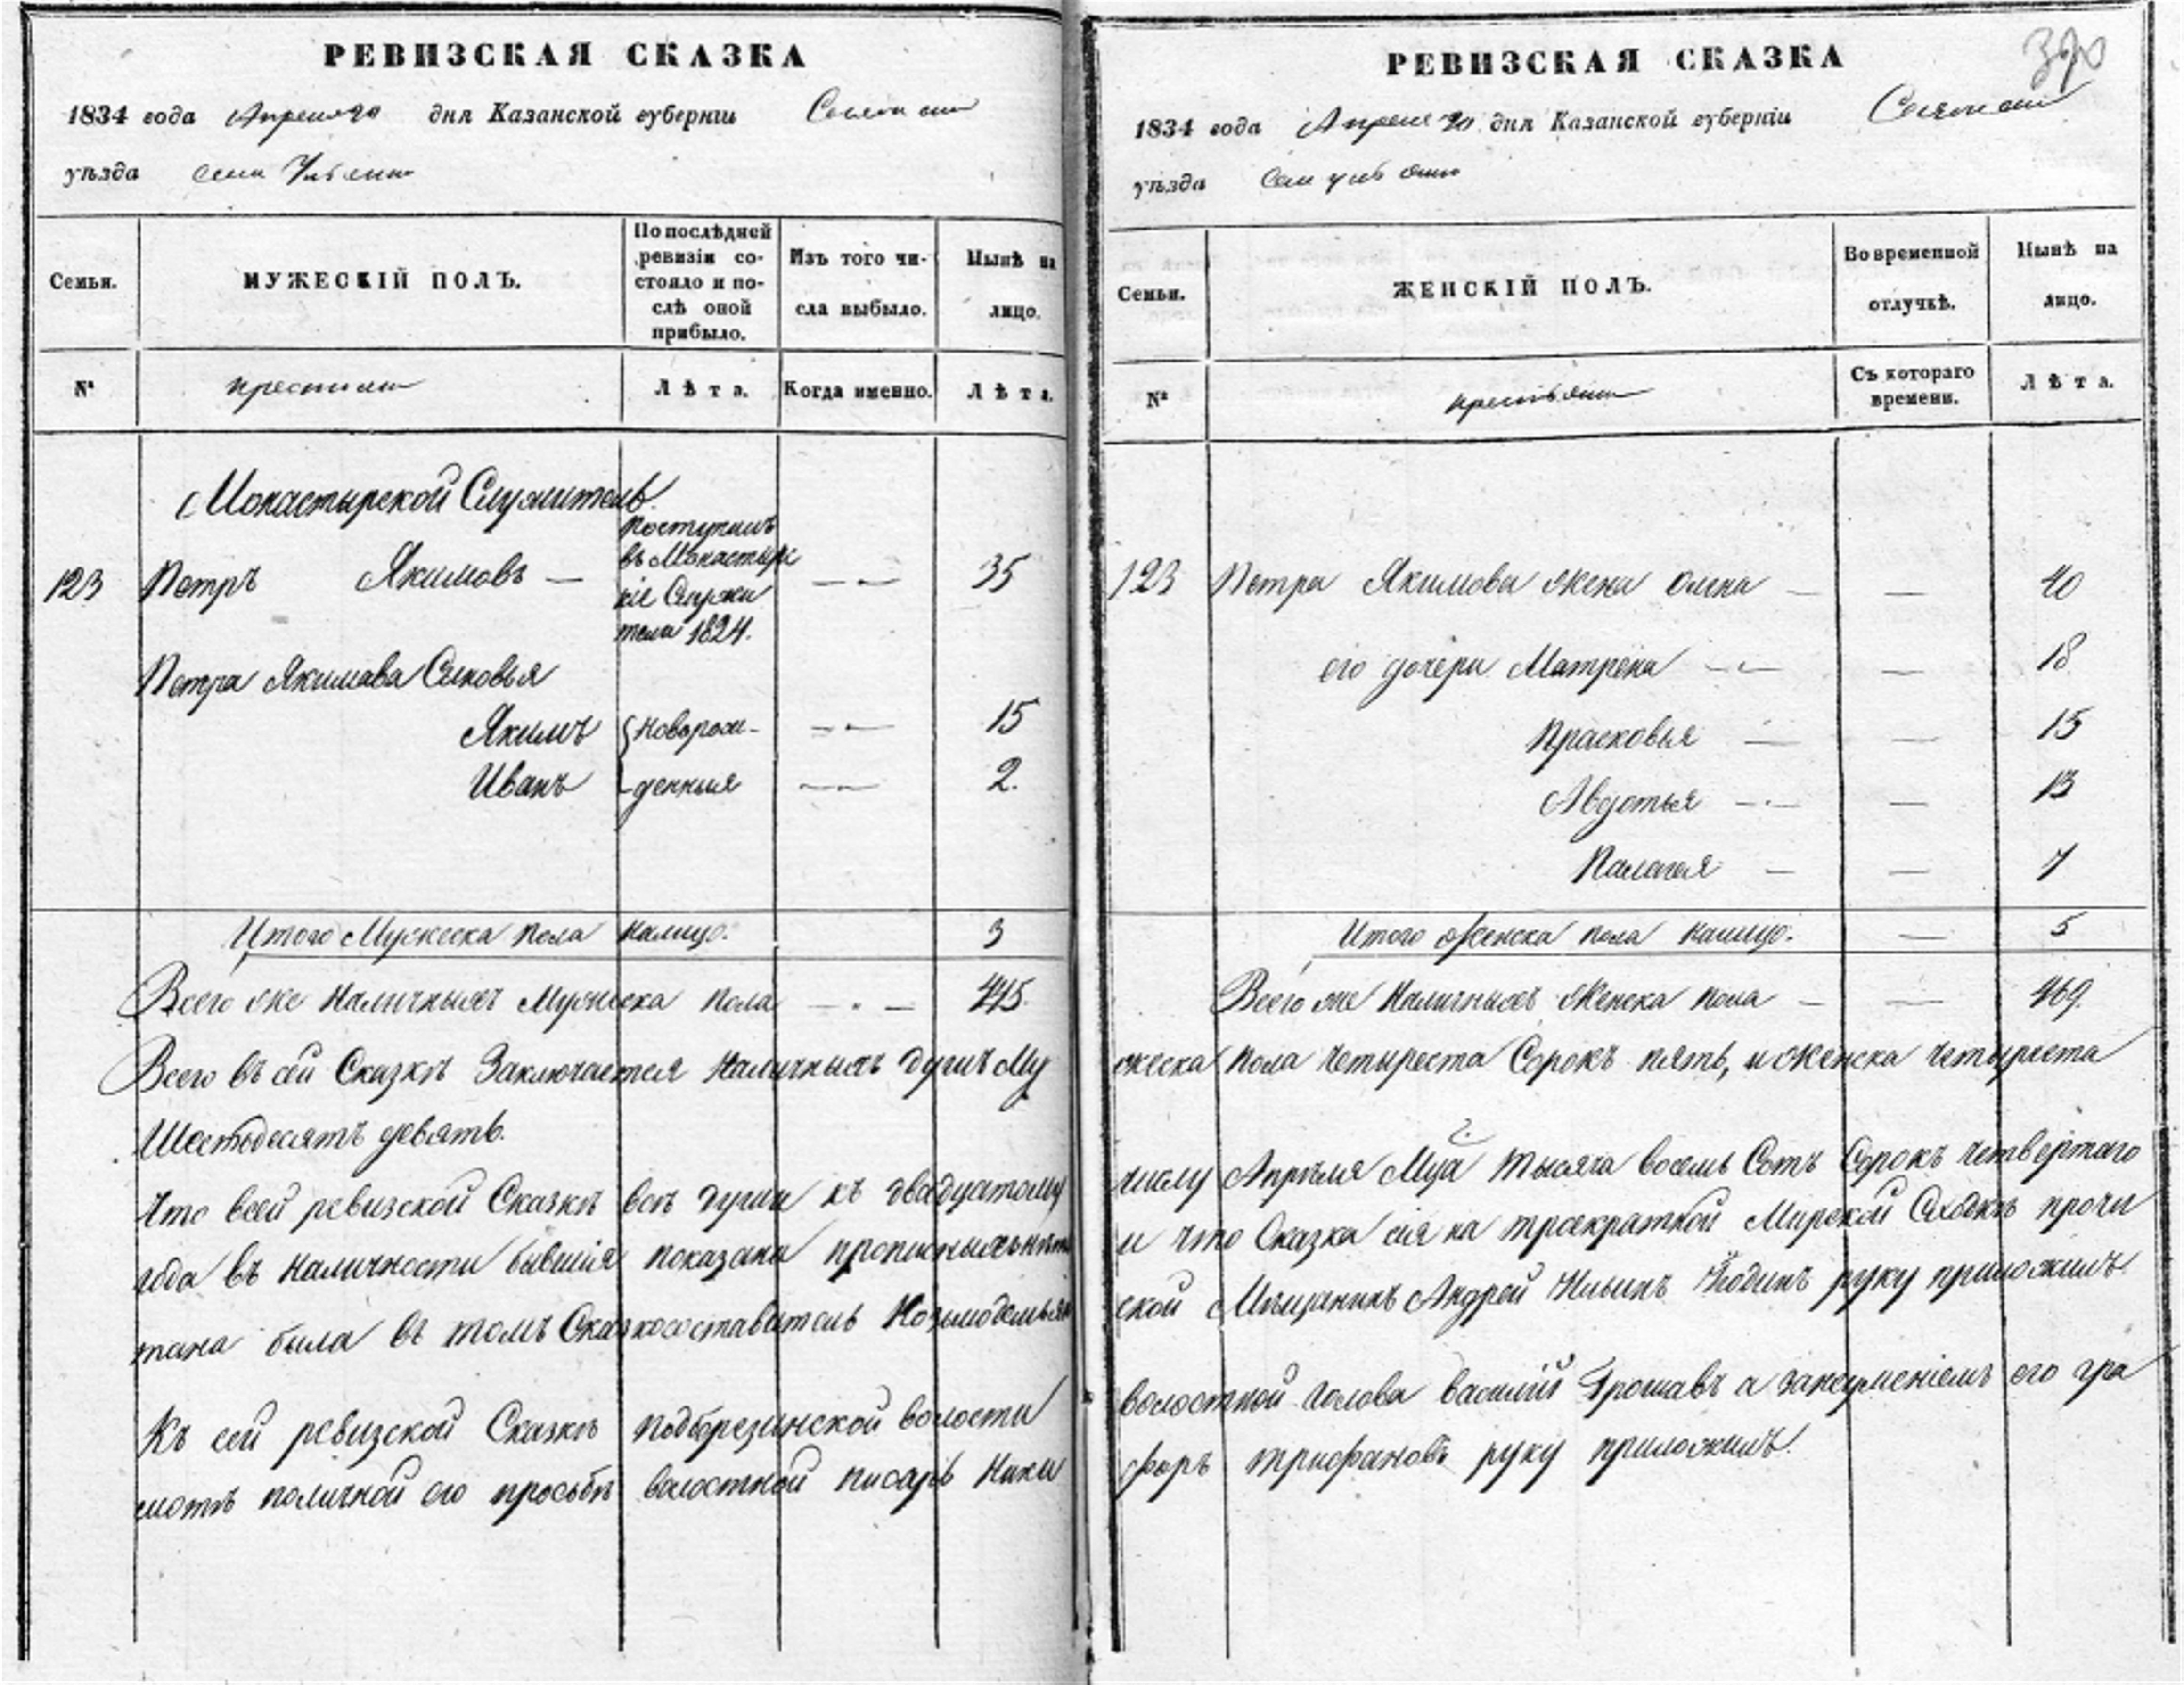 РЕВИЗСКАЯ СКАЗКА
1834 года Апреля 20 дня Казанской губерніи
уѣзда
Семьи.
МУЖЕСКІЙ ПОЛЪ.
По послѣдней
ревизіи со-
стояло и по-
слѣ оной
прибыло.
Изъ того чи-
сла выбыло.
Нынѣ на
лицо.
№
Лѣта.
Когда именно.
Лѣта.
Монастырской Служитель
123 Петръ Якимовъ — — 35
поступилъ
въ Монастырс
кіе Служи
тели 1824.
Петра Якимова Сыновья
Якимъ { новорож- — 15
Иванъ денныя — 2.
Итого Мужеска пола налицо. 3
Всего же Наличныхъ Мужеска пола — 445.
Всего въ сей Сказкѣ Заключается Наличныхъ душъ Му
Шестьдесятъ девять.
Что всей ревизской Сказкѣ всѣ души къ двадцатому
года въ наличности бывшія показаны
тана была въ томъ Сказкосоставитель Козмодемьян
Къ сей ревизской Сказкѣ Подберезинской волости
моть поличной его просьбѣ волостной писарь Ники
РЕВИЗСКАЯ СКАЗКА
1834 года Апреля 20 дня Казанской губерніи
уѣзда
Семьи.
ЖЕНСКІЙ ПОЛЪ.
Во временной
отлучкѣ.
Нынѣ на
лицо.
№
Съ котораго
времени.
Лѣта.
123 Петра Якимова жена Олена — — 40
его дочери Матрена — — 18
Прасковья — — 15
Авдотья — — 13
Палагея — — 7
Итого Женска пола налицо. — 5
Всего же Наличныхъ Женска пола — — 469.
жеска пола четыреста Сорокъ пять, и женска четыреста
числу Апрѣля Мца тысяча восемь Сотъ Сорокъ четвертаго
и что Сказка сія на троекратной Мирской Сходкѣ прочи
ской Мѣщанинъ Андрей Ильинъ руку приложилъ.
волостной голова Василій а занеумѣніемъ его гра
форъ трифановъ руку приложилъ.